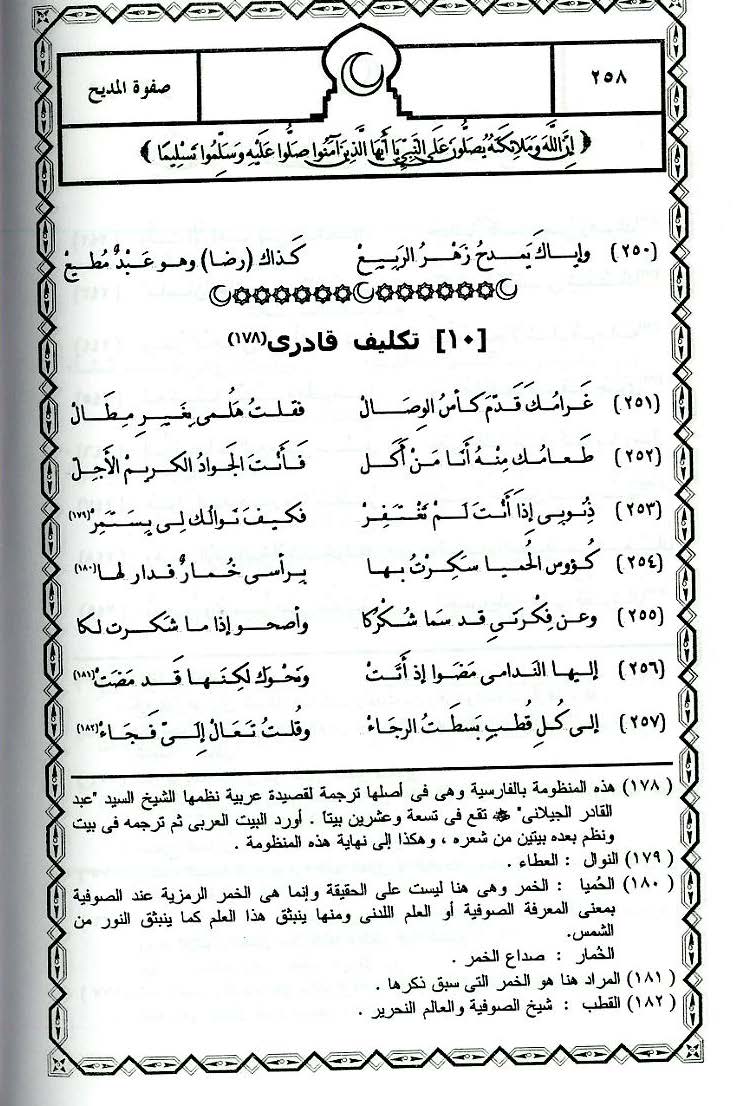 ٢٥٨
صفوة المديح
﴿ إِنَّ اللَّهَ وَمَلائِكَتَهُ يُصَلُّونَ عَلَى النَّبِيِّ يَا أَيُّهَا الَّذِينَ آمَنُوا صَلُّوا عَلَيْهِ وَسَلِّمُوا تَسْلِيمًا ﴾
(٢٥٠) وإياكَ يَمدحُ زَهْرُ الرَبِيعْ كَذاك (رضا) وهو عَبْدٌ مُطيعْ
[١٠] تكليف قادرى(١٧٨)
(٢٥١) غَرامُكَ قَدَّمَ كأسَ الوِصَالْ فقلتُ هَلُمى بِغَيرِ مِطَالْ
(٢٥٢) طَعامُك مِنْهُ أنَا مَنْ أَكَلْ فَأَنْتَ الجَوادُ الكريمُ الأجَلّ
(٢٥٣) ذُنوبِى إذَا أَنْتَ لَمْ تَغْتَفِرْ فكيفَ نَوالُك لِى يِسْتَمِرْ(١٧٩)
(٢٥٤) كُؤوس الحُميا سَكِرْتُ بهَا بِرأسى خُمارٌ فدار لها(١٨٠)
(٢٥٥) وعن فِكْرَتى قد سَمَا شُكْرُكا وأصحو إذا ما شكرت لكا
(٢٥٦) إليها النَدامى مَضَوا إذ أَتَتْ ونَحْوكَ لكِنَها قَد مَضَتْ(١٨١)
(٢٥٧) إلى كُلِ قُطبٍ بَسطَتُ الرجَاءْ وقُلتُ تَعَالْ إلَىّ فَجَاءْ(١٨٢)
(١٧٨) هذه المنظومة بالفارسية وهى فى أصلها ترجمة لقصيدة عربية نظمها الشيخ السيد "عبد
القادر الجيلانى" ﷺ تقع فى تسعة وعشرين بيتاً . أورد البيت العربى ثم ترجمه فى بيت
ونظم بعده بيتين من شعره ، وهكذا إلى نهاية هذه المنظومة .
(١٧٩) النوال : العطاء .
(١٨٠) الحُميا : الخمر وهى هنا ليست على الحقيقة وإنما هى الخمر الرمزية عند الصوفية
بمعنى المعرفة الصوفية أو العلم اللدنى ومنها ينبثق هذا العلم كما ينبثق النور من
الشمس.
الخُمار : صداع الخمر .
(١٨١) المراد هنا هو الخمر التى سبق ذكرها .
(١٨٢) القطب : شيخ الصوفية والعالم النحرير .